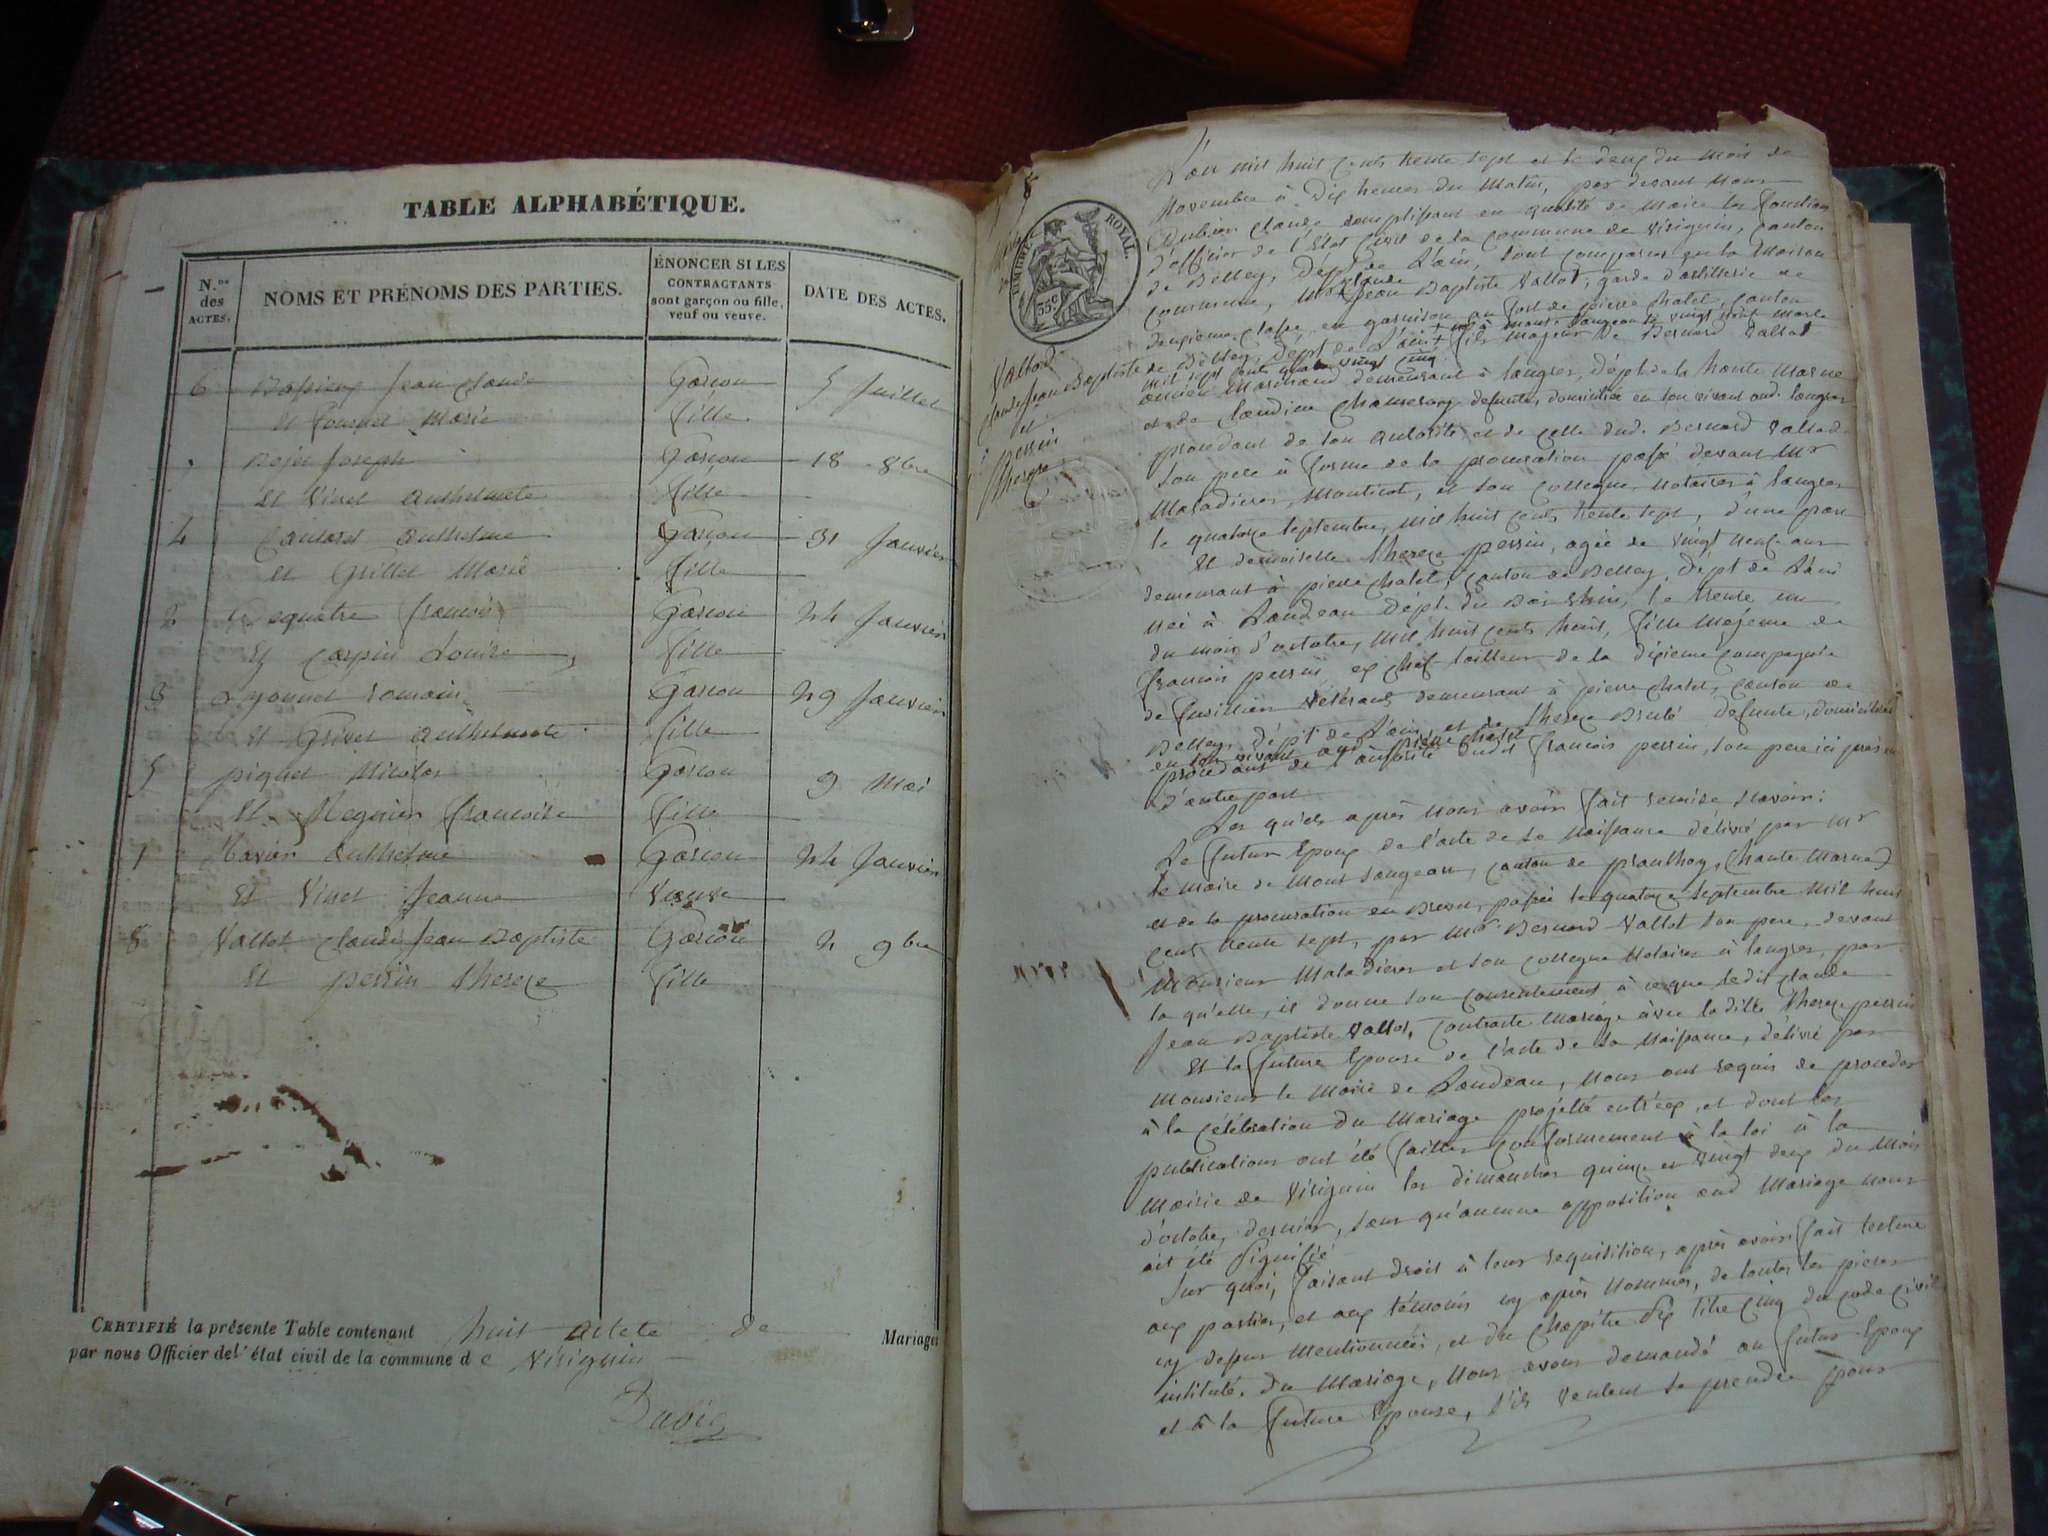 TABLE ALPHABÉTIQUE.
N.os des ACTES.
NOMS ET PRÉNOMS DES PARTIES.
ÉNONCER SI LES
CONTRACTANTS
sont garçon ou fille,
veuf ou veuve.
DATE DES ACTES.
6 Jean Claude Garcon 5 Juillet
Et Marie fille
Bojet Joseph Garcon 18 8bre
Et Vinet anthelmete fille
4 anthelme Garcon 31 Janvier
Et Grillet Marie fille
2 francois Garcon 24 Janvier
Et Carpin Louise fille
3 Lyonnet romain Garcon 29 Janvier
Et Grivet anthelmete fille
5 piquet Nicolas Garcon 9 Mai
Et Meynier francoise fille
1 anthelme Garcon 24 Janvier
Et Vinet Jeanne Veuve
8 Vallot Claude Jean Baptiste Garcon 2 9bre
Et perrin therese fille
CERTIFIÉ la présente Table contenant huit actete de Mariages
par nous Officier de l'état civil de la commune de Virignin
8
TIMBRE ROYAL
35c
Vallot
Claude Jean Baptiste
et
perrin
therese
L'an mil huit cents trente sept et le deux du mois de
Novembre à Dix heures du Matin, par devant Nous
Claude remplissant en qualité de Maire les fonctions
d'officier de l'Etat Civil de la Commune de Virignin, Canton
de Belley, Dépt de L'ain, sont comparus en la Maison
Commune, Mr Claude Jean Baptiste Vallot, garde d'artillerie de
deuxieme Classe en garnison au fort de pierre Chatel, Canton
de Belley, Dépt de L'ain + né à mont Saugeon le vingt neuf mars
mil sept cents quatre vingt cinq fils majeur de Bernard Vallot
ancien Marchand demeurant à langres, dépt de la haute Marne
et de Claudine defunte, domiciliée en son vivant aud. langres
procedant de son autorité et de celle dud. Bernard Vallot
son pere à forme de la procuration passé devant Mr
Maladieres, Monticot, et son Collegue, Notaires à langres
le quatorze septembre, mil huit cents trente sept, d'une part
Et demoiselle therese perrin, agée de vingt neuf ans
demeurant à pierre chatel, canton de Belley, dépt de L'ain
née à Landeau dépt. du Bas Rhin, le trente un
du mois d'octobre, mil huit cents huit, fille Majeure de
francois perrin, ex Chef tailleur de la dixieme Compagnie
de fusilliers Vétérans demeurant à pierre chatel, canton de
Belley, dépt de L'ain, et de therese Brulé defunte, domiciliée
en son vivant aud. pierre chatel
procedant de l'autorité dudit francois perrin, son pere ici présent
d'autre part
Les quels après nous avoir fait remise savoir:
Le futur Epoux de l'acte de sa Naissance délivré par Mr
le maire de Mont Saugeon, canton de prauthoy, (haute Marne)
et de la procuration en Brevet, passée le quatorze septembre mil huit
cent trente sept, par Mr Bernard Vallot son pere, devant
Monsieur Maladieres et son Collegue Notaires à langres, par
la qu'elle, il donne son consentement à ce que ledit Claude
Jean Baptiste Vallot, contracte mariage avec ladite therese perrin
Et la future Epouse de l'acte de sa Naissance, délivré par
Monsieur le Maire de Landeau, nous ont requis de proceder
à la célébration du Mariage projetté entr'eux, et dont les
publications ont été faittes conformement à la loi à la
Mairie de Virignin les dimanches quinze et vingt deux du Mois
d'octobre, dernier, sans qu'aucune opposition aud Mariage nous
ait été signifié
Sur quoi, faisant droit à leur requisition, après avoir fait lecture
aux parties, et aux témoins cy après nommés, de toutes les pieces
cy dessus Mentionnées, et du Chapitre Six titre Cinq du code civil
intitulé, du Mariage, Nous avons demandé au futur Epoux
et à la future Epouse, s'ils veulent se prendre pour